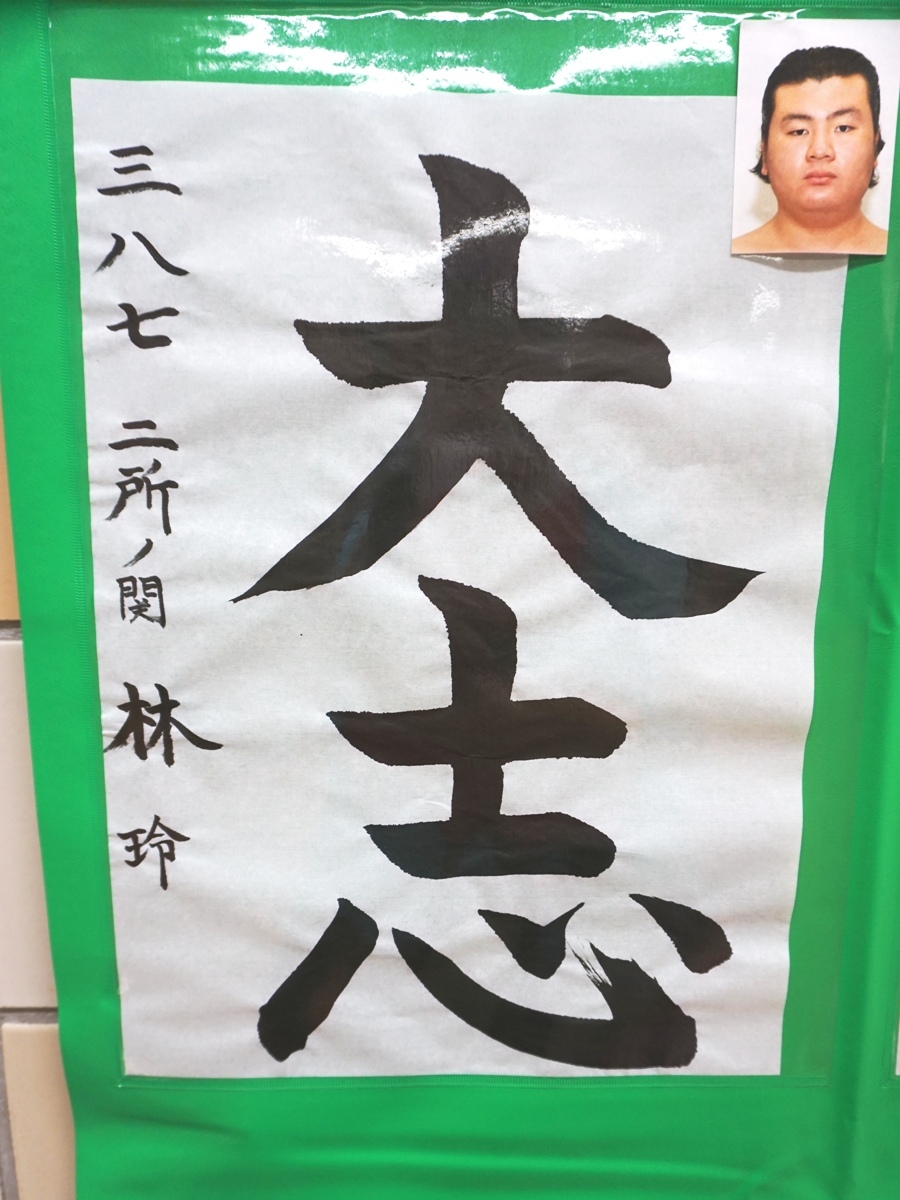 大志
三八七 二所ノ関 林 玲